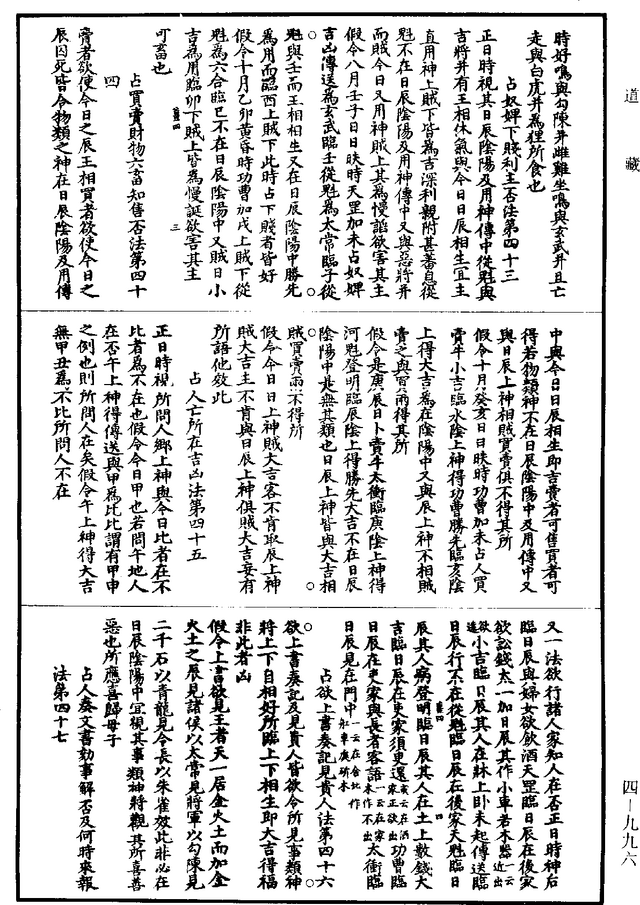 道藏
時好鳴與勾陳并雌雞坐鳴與玄武并且亡
走與白虎并為狸所食也
占奴婢下賤利主否法第四十三
正日時視其日辰陰陽及用神傳中從魁與
吉將并有王相休氣與今日日辰相生宜主
直用神上賊下皆為吉深利觀附甚蕃息從
魁不在日辰陰陽及用神傳中又與惡將并
而賊今日又用神賊上其為慢諂欲害其主
假令八月壬子日日昳時天罡加未占奴婢
吉凶傳送為玄武臨壬從魁為太常臨子從
魁與壬而王相相生又在日辰陰陽中勝先
為用而臨酉上賊下此時占下賤者皆好
假令十月乙卯黃昏時功曹加戌上賊下從
魁為六合臨巳不在日辰陰陽中又賊日小
吉為用臨卯下賊上皆為慢誕欲害其主
可畜也
占買賣財物六畜知售否法第四十
四
賣者欲使今日之辰王相買者欲使今日之
辰囚死皆令物類之神在日辰陰陽及用傳
中與今日日辰相生即吉賣者可售買者可
得若物類神不在日辰陰陽中及用傳中又
與日辰上神相賊買賣俱不得其所
假令十月癸亥日日昳時功曹加未占人買
賣牛小吉臨水陰上神得功曹勝先臨亥陰
上得大吉為在陰陽中又與辰上神不相賊
賣之與買兩得其所
假令是庚辰日卜賣牛太衝臨庚陰上神得
河魁登明臨辰陰上得勝先大吉不在日辰
陰陽中是無其類也日辰上神皆與大吉相
賊買賣兩不得所
假令今日日上神賊大吉客不肯取辰上神
賊大吉主不肯與日辰上神俱賊大吉妄有
所語他效此
占人亡所在吉凶法第四十五
正日時視所問人鄉上神與今日比者在不
比者為不在也假令今日甲也若問午地人
在否午上神得傳送與甲為比比謂有甲申
之例也則所問人在矣假令午上神得大吉
無甲丑為不比所問人不在
又一法欲行諸人家知人在否正日時神后
臨日辰與婦女欲飲酒天罡臨日辰在後家
欲訟錢太一加日辰其作小車若木器一云近出
欲遠小吉臨日辰其人在牀上卧未起傳送臨
日辰行不在從魁臨日辰在後家天魁臨日
辰其人病登明臨日辰其人在土上數錢大
吉臨日辰在吏家須更還
日辰在吏家與長者客語太衝臨
日辰見在門中
占欲上書奏記見貴人法第四十六
欲上書奏記及見貴人皆欲令所見事類神
將上下自相好所臨上下相生即大吉得福
非此者凶
假令上書欲見王者天一居金火土而加金
火土之辰見諸侯以太常見將軍以勾陳見
二千石以青龍見令長以朱雀效此非必在
日辰陰陽中宜視其事類神將觀其所喜善
惡也所應喜歸母子
占人奏文書劾事解否及何時來報
法第四十七
四一九九六